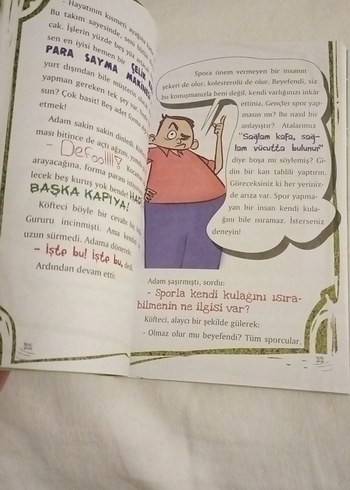 - Hayatının kısmeti ayağına
Bu takım sayesinde, seni
cak. İşlerin yüzde beş yüz
sen en iyisi hemen bir ÇELİK
PARA SAYMA MAKİNESİ
yurt dışından bile müşteri
yapman gereken tek şey var
sun? Çok basit! Beş adet formayı
etmek!
Adam sakin sakin dinledi.
ması bitince de açtı ağzını, yumdu
- Defoolll!?
arayacağıma, forma parası
lecek beş kuruş yok bende! HADİ
BAŞKA KAPIYA!
Köfteci böyle bir cevabı hiç
Gururu incinmişti. Ama kendini
uzun sürmedi. Adama dönerek
- İşte bu! İşte bu, dedi.
Ardından devam etti:
Spora önem vermeyen bir insanın
şekeri de olur, kolesterolü de olur. Beyefendi, siz
bu konuşmanızla beni değil, kendi varlığınızı inkâr
ettiniz. Gençler spor yap-
masın mı? Bu nasıl bir
anlayıştır? Atalarımız
"Sağlam kafa, sağ-
lam vücutta bulunur"
diye boşa mı söylemiş? Gi-
din bir kan tahlili yaptırın.
Göreceksiniz ki her yeriniz-
de arıza var. Spor yapma-
yan bir insan kendi kula-
ğını bile ısıramaz. İsterseniz
deneyin!
Adam şaşırmıştı, sordu:
- Sporla kendi kulağını ısıra-
bilmenin ne ilgisi var?
Köfteci, alaycı bir şekilde gülerek:
- Olmaz olur mu beyefendi? Tüm sporcular,